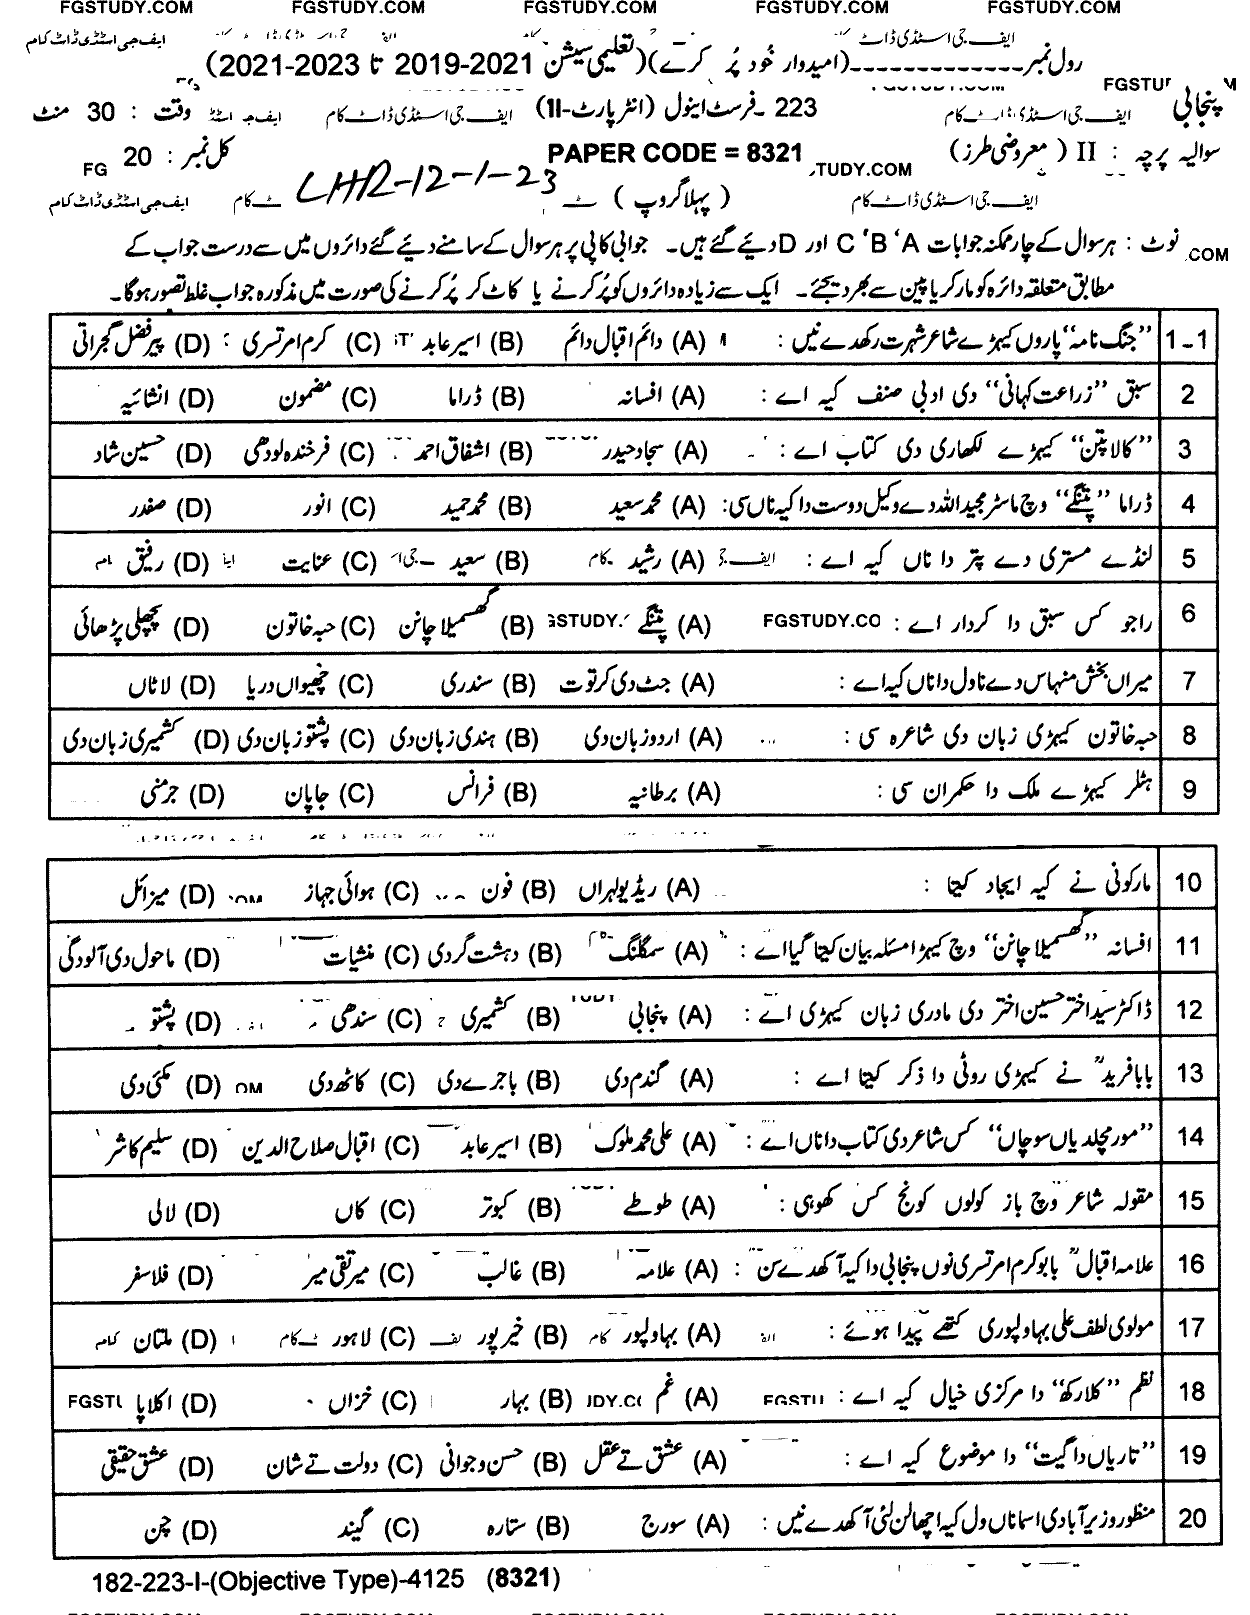 FGSTUDY.COM FGSTUDY.COM FGSTUDY.COM FGSTUDY.COM FGSTUDY.COM
ایف جی اسٹڈی ڈاٹ کام
رول نمبر ـــــــــــــ (امیدوار خُود پُر کرے) (تعلیمی سیشن 2021-2019 تا 2023-2021)
پنجابی 223 ۔ فرسٹ اینول (انٹر پارٹ-II) وقت : 30 منٹ
سوالیہ پرچہ : II (معروضی طرز) PAPER CODE = 8321 کل نمبر : 20
LHR-12-1-23
(پہلا گروپ)
نوٹ : ہر سوال کے چار ممکنہ جوابات A ‘B ‘C اور D دیئے گئے ہیں۔ جوابی کاپی پر ہر سوال کے سامنے دیئے گئے دائروں میں سے درست جواب کے
مطابق متعلقہ دائرہ کو مارکر یا پین سے بھر دیجئے۔ ایک سے زیادہ دائروں کو پُر کرنے یا کاٹ کر پُر کرنے کی صورت میں مذکورہ جواب غلط تصور ہوگا۔
1-1 ”جنگ نامہ“ پاروں کیہڑے شاعر شہرت رکھدے نیں : (A) دائم اقبال دائم (B) اسیر عابد (C) کرم امرتسری (D) پیر فضل گجراتی
2 سبق ”زراعت کہانی“ دی ادبی صنف کیہ اے : (A) افسانہ (B) ڈراما (C) مضمون (D) انشائیہ
3 ”کالا پتن“ کیہڑے لکھاری دی کتاب اے : (A) سجاد حیدر (B) اشفاق احمد (C) فرخندہ لودھی (D) حسین شاد
4 ڈراما ”پتنگے“ وچ ماسٹر مجید اللہ دے وکیل دوست دا کیہ ناں سی : (A) محمد سعید (B) محمد حمید (C) انور (D) صفدر
5 لنڈے مستری دے پتر دا ناں کیہ اے : (A) رشید (B) سعید (C) عنایت (D) رفیق
6 راجو کس سبق دا کردار اے : (A) پتنگے (B) گھسمیلا چانن (C) حبہ خاتون (D) پچھلی پڑھائی
7 میراں بخش منہاس دے ناول دا ناں کیہ اے : (A) جٹ دی کرتوت (B) سندری (C) چھیواں دریا (D) لاٹاں
8 حبہ خاتون کیہڑی زبان دی شاعرہ سی : (A) اردو زبان دی (B) ہندی زبان دی (C) پشتو زبان دی (D) کشمیری زبان دی
9 ہٹلر کیہڑے ملک دا حکمران سی : (A) برطانیہ (B) فرانس (C) جاپان (D) جرمنی
10 مارکونی نے کیہ ایجاد کیتا : (A) ریڈیو لہراں (B) فون (C) ہوائی جہاز (D) میزائل
11 افسانہ ”گھسمیلا چانن“ وچ کیہڑا مسئلہ بیان کیتا گیا اے : (A) سمگلنگ (B) دہشت گردی (C) منشیات (D) ماحول دی آلودگی
12 ڈاکٹر سید اختر حسین اختر دی مادری زبان کیہڑی اے : (A) پنجابی (B) کشمیری (C) سندھی (D) پشتو
13 بابا فریدؒ نے کیہڑی روٹی دا ذکر کیتا اے : (A) گندم دی (B) باجرے دی (C) کاٹھ دی (D) مکئی دی
14 ”مور مچلدیاں سوچاں“ کس شاعر دی کتاب دا ناں اے : (A) علی محمد ملوک (B) اسیر عابد (C) اقبال صلاح الدین (D) سلیم کاشر
15 مقولہ شاعر وچ باز کولوں کونج کس کھوہی : (A) طوطے (B) کبوتر (C) کاں (D) لالی
16 علامہ اقبالؒ بابو کرم امرتسری نوں پنجابی دا کیہ آکھدے سن : (A) علامہ (B) غالب (C) میر تقی میر (D) فلاسفر
17 مولوی لطف علی بہاولپوری کتھے پیدا ہوئے : (A) بہاولپور (B) خیر پور (C) لاہور (D) ملتان
18 نظم ”کلا رکھ“ دا مرکزی خیال کیہ اے : (A) غم (B) بہار (C) خزاں (D) اکلاپا
19 ”تاریاں دا گیت“ دا موضوع کیہ اے : (A) عشق تے عقل (B) حسن و جوانی (C) دولت تے شان (D) عشق حقیقی
20 منظور وزیر آبادی اسماناں ول کیہ اچھالن لئی آکھدے نیں : (A) سورج (B) ستارہ (C) گیند (D) چن
182-223-I-(Objective Type)-4125 (8321)